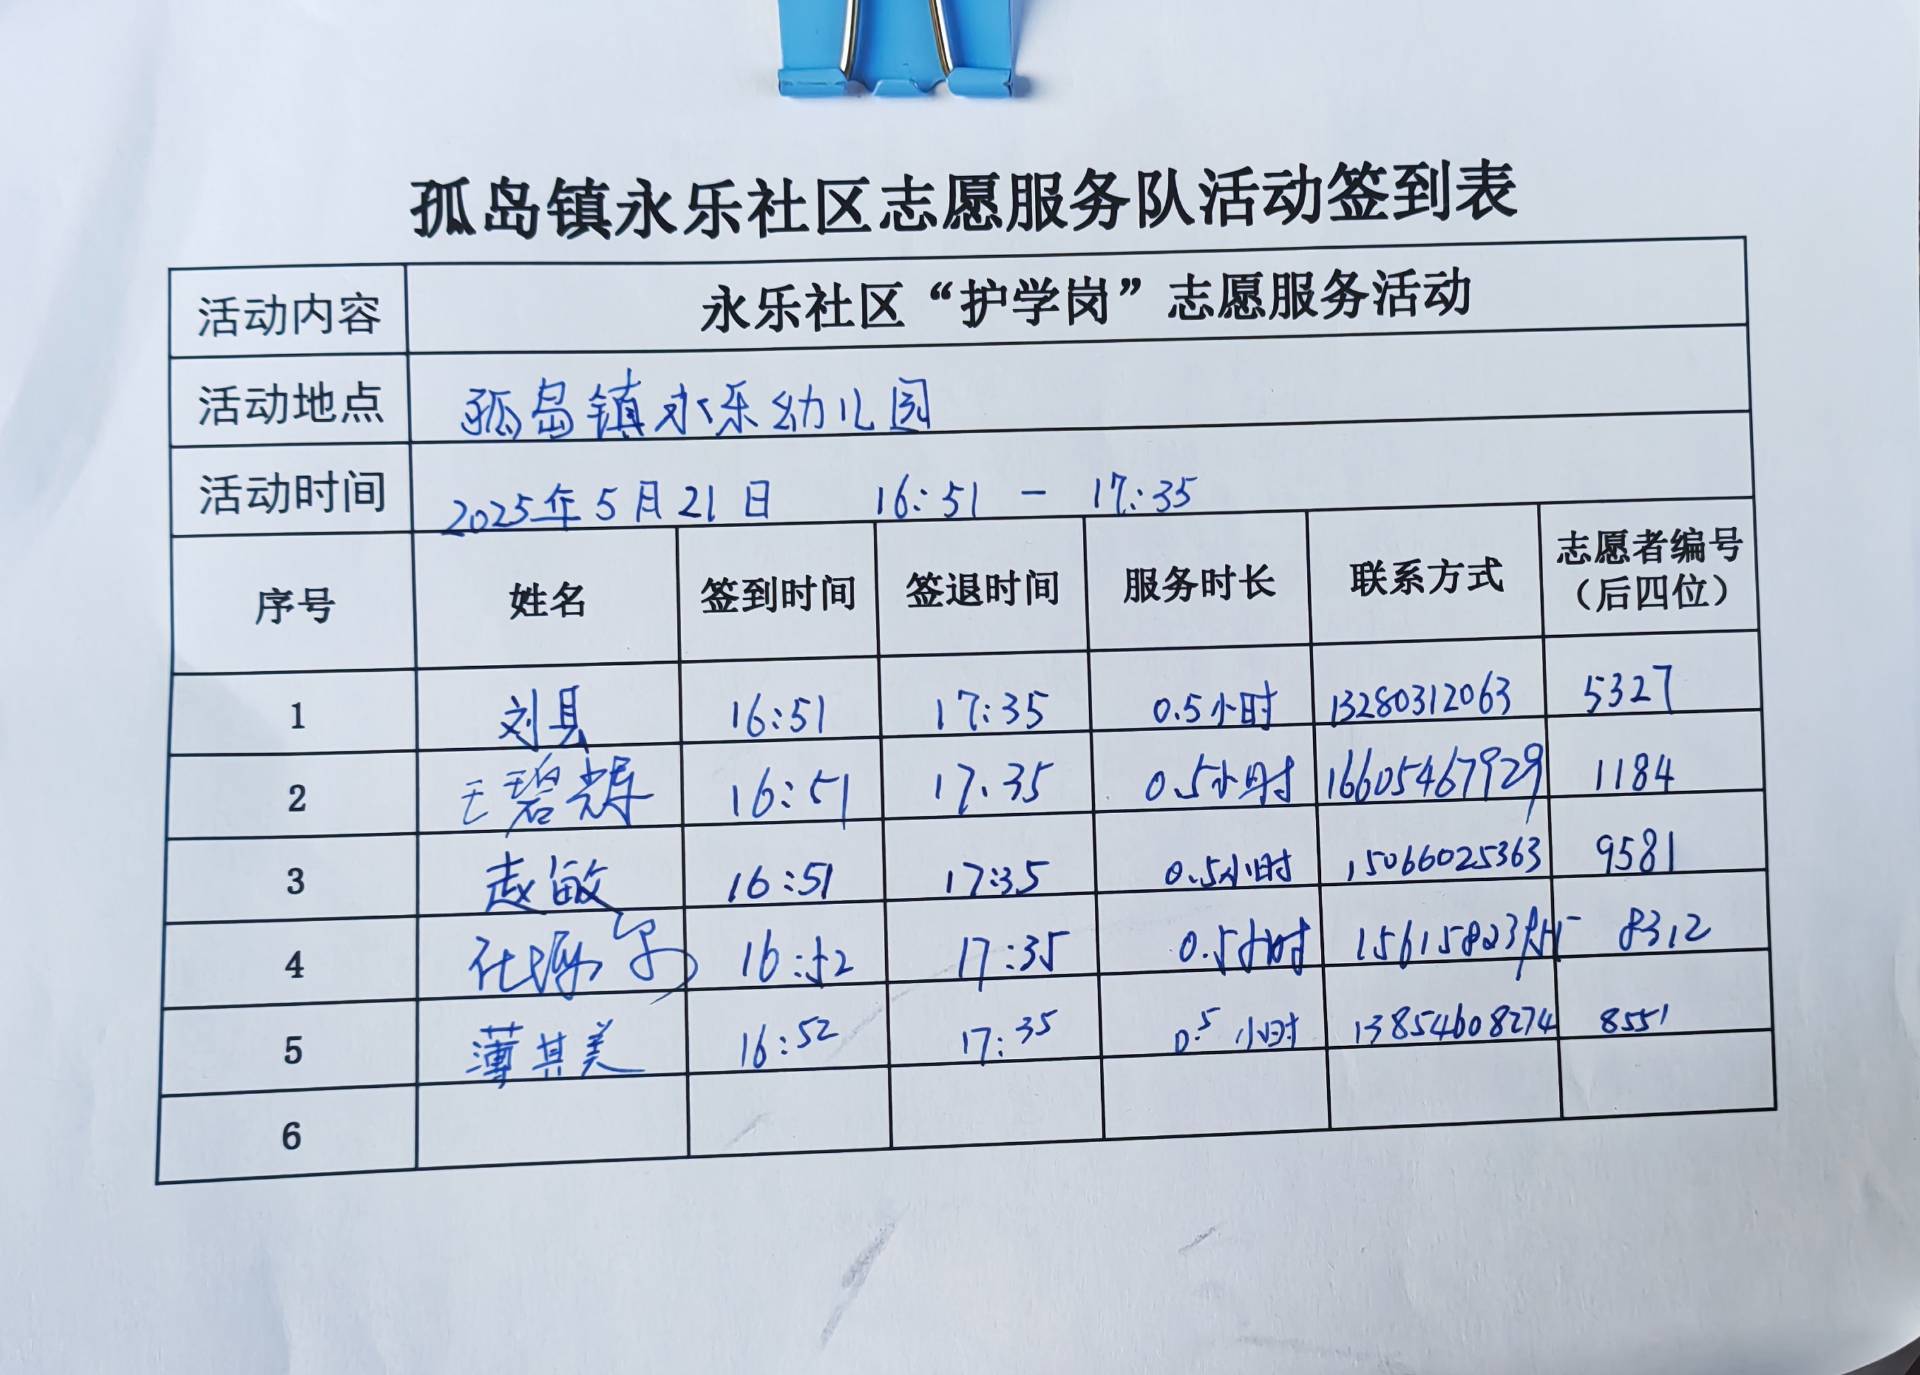 孤岛镇永乐社区志愿服务队活动签到表
活动内容 永乐社区“护学岗”志愿服务活动
活动地点 孤岛镇永乐幼儿园
活动时间 2025年5月21日 16:51 - 17:35
序号 姓名 签到时间 签退时间 服务时长 联系方式 志愿者编号（后四位）
1 刘县 16:51 17:35 0.5小时 13280312063 5327
2 王碧辉 16:51 17:35 0.5小时 16605467929 1184
3 赵敏 16:51 17:35 0.5小时 15066025363 9581
4 16:52 17:35 0.5小时 8312
5 薄其美 16:52 17:35 0.5小时 13854608274 8551
6